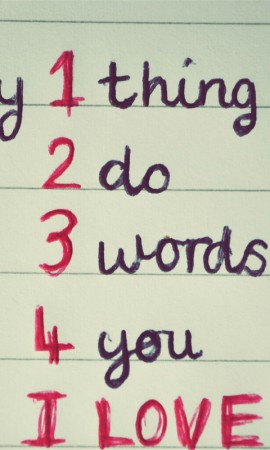 y 1 thing
2 do
3 words
4 you
I LOVE